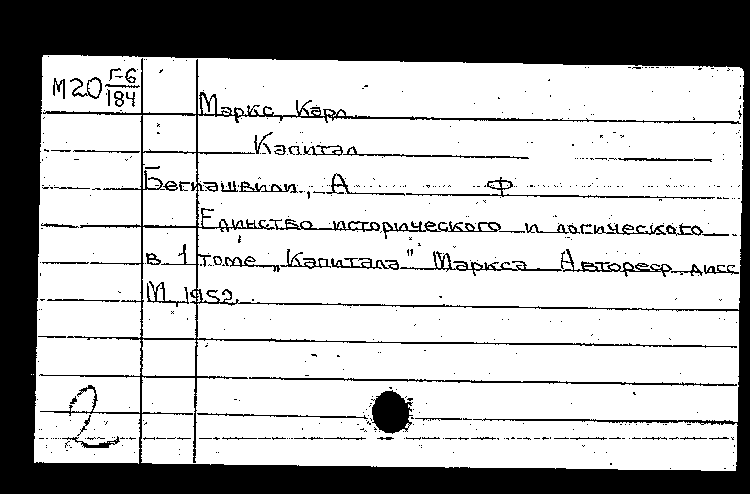 М20 Г-6/184
Маркс, Карл
Капитал
Бегиашвили, А Ф
Единство исторического и логического
в 1 томе „Капитала" Маркса. Автореф дисс
М, 1952.
2